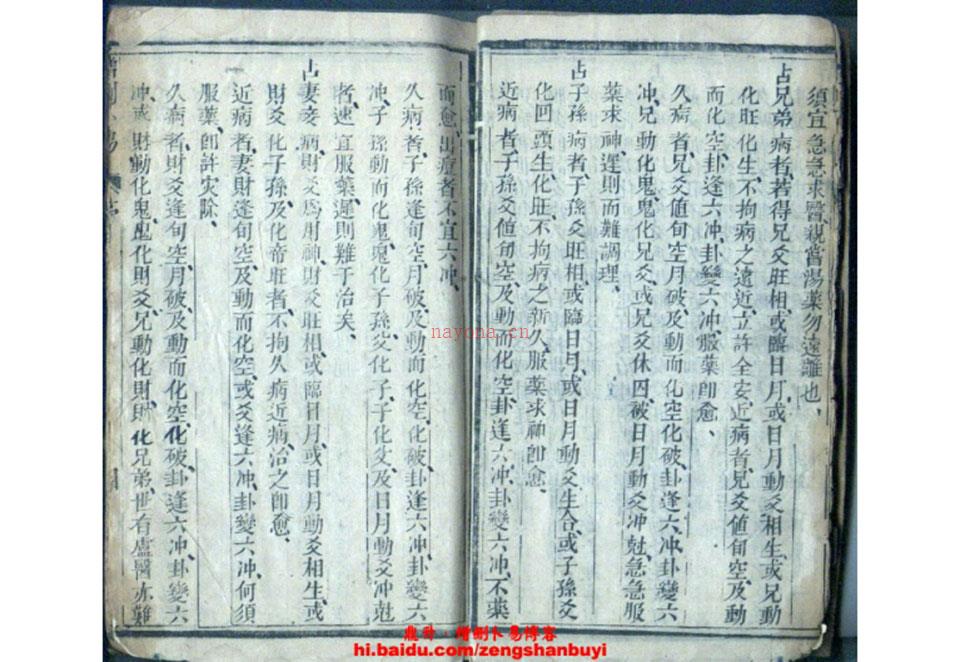 須宜急急求醫親嘗湯藥勿遠離也、
占兄弟病者、若得兄爻旺相、或臨日月、或日月動爻相生、或兄動
化旺化生、不拘病之遠近、立許全安、近病者、兄爻値旬空、及動
而化空、卦逢六冲、卦變六冲、服藥卽愈、
久病者、兄爻値旬空月破、及動而化空化破、卦逢六冲、卦變六
冲、兄動化鬼、鬼化兄爻、或兄爻休囚、被日月動爻冲尅、急急服
藥求神、遲則而難調理、
占子孫病者、子孫爻旺相、或臨日月、或日月動爻生合、或子孫爻
化回頭生、化旺、不拘病之新久、服藥求神卽愈、
近病者、子孫爻値旬空、及動而化空、卦逢六冲、卦變六冲、不藥
而愈、出痘者不宜六冲、
久病者、子孫逢旬空、月破、及動而化空、化破、卦逢六冲、卦變六
冲、子孫動而化鬼、鬼化子孫、父化子、子化父、及日月動爻冲尅
者、速宜服藥、遲則難于治矣、
占妻妾病、財爻爲用神、財爻旺相、或臨日月、或日月動爻相生、或
財爻化子孫、及化帝旺者、不拘久病近病、治之卽愈、
近病者、妻財逢旬空、及動而化空、或爻逢六冲、卦變六冲、何須
服藥、卽許灾除、
久病者、財爻逢旬空、月破、及動而化空、化破、卦逢六冲、卦變六
冲、或財動化鬼、鬼化財爻、兄動化財、財化兄弟、世有盧醫亦難
nayona.cn
鼎升·增刪卜易博客
hi.baidu.com/zengshanbuyi